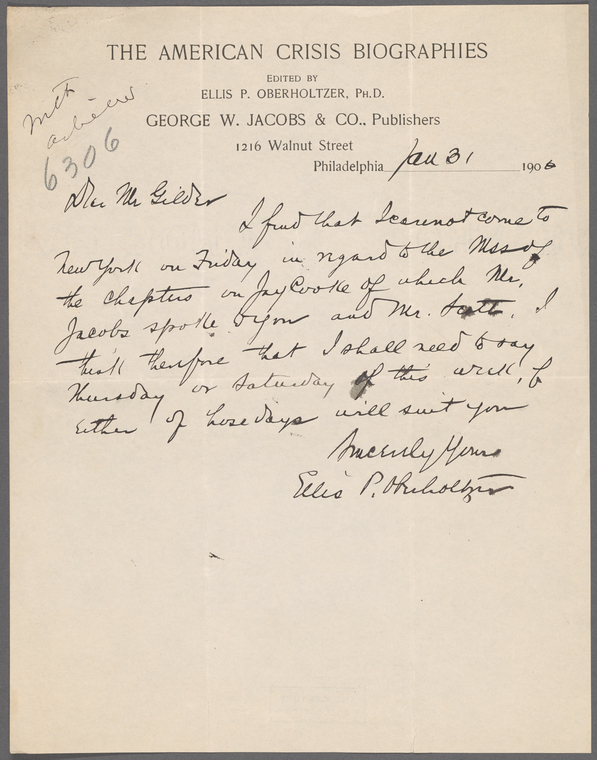 THE AMERICAN CRISIS BIOGRAPHIES
EDITED BY
ELLIS P. OBERHOLTZER, PH.D.
GEORGE W. JACOBS & CO., Publishers
1216 Walnut Street
Philadelphia Jan 31 1906
6306
Dear Mr Gilder
I find that I cannot come to
New York on Friday in regard to the Mss of
the chapters on Jay Cooke of which Mr.
Jacobs spoke to you and Mr. Scott. I
think therefore that I shall need to say
Thursday or Saturday of this week, if
either of those days will suit you
Sincerely Yours
Ellis P. Oberholtzer